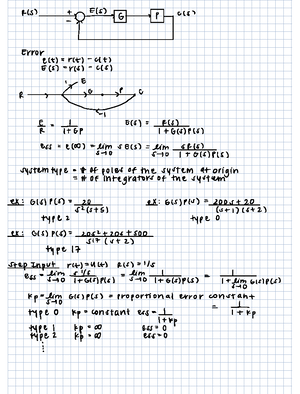 R(s) + E(s) G P C(s)
−
Error
e(t) = r(t) - c(t)
E(s) = r(s) - c(s)
1 E
R G P C
-1
E/R = 1/(1+GP) E(s) = R(s)/(1+G(s)P(s))
ess = e(∞) = lim s→0 s E(s) = lim s→0 sR(s)/(1+G(s)P(s))
system type = # of poles of the system at origin
= # of integrators of the system
ex: G(s)P(s) = 20/(s²(s+5)) ex: G(s)P(s) = 200s+20/((s+1)(s+2))
type 2 type 0
ex: G(s)P(s) = 20s²+20s+500/(s17(s+2))
type 17
Step Input r(t)=u(t) R(s)=1/s
ess = lim s→0 s 1/s/(1+G(s)P(s)) = lim s→0 1/(1+G(s)P(s)) = 1/(1+lim s→0 G(s)P(s))
Kp = lim s→0 G(s)P(s) = proportional error constant = 1/(1+Kp)
type 0 Kp = constant ess = 1/(1+Kp)
type 1 Kp = ∞ ess = 0
type 2 Kp = ∞ ess = 0
⋮